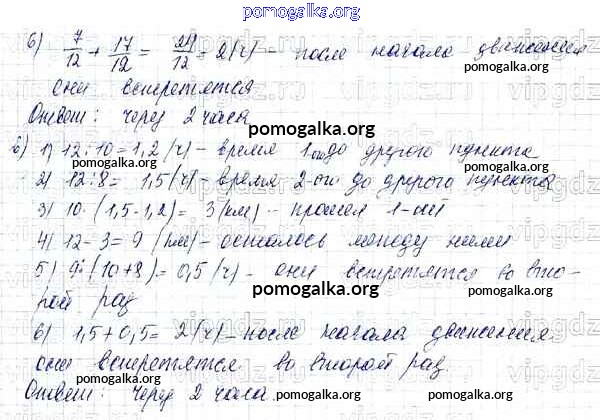 pomogalka.org
6) 7/12 + 17/12 = 24/12 = 2 (ч) – после начала движения
pomogalka.org
они встретятся
Ответ: через 2 часа
pomogalka.org
б) 1) 12:10 = 1,2 (ч) – время 1-ого до другого пункта
2) 12:8 = 1,5 (ч) – время 2-ого до другого пункта
pomogalka.org
3) 10·(1,5-1,2) = 3 (км) – прошел 1-ый
4) 12-3 = 9 (км) – осталось между ними
pomogalka.org
5) 9:(10+8) = 0,5 (ч) – они встретятся во вто-
рой раз
pomogalka.org
6) 1,5+0,5 = 2 (ч) – после начала движения
они встретятся во второй раз
pomogalka.org
Ответ: через 2 часа.
pomogalka.org